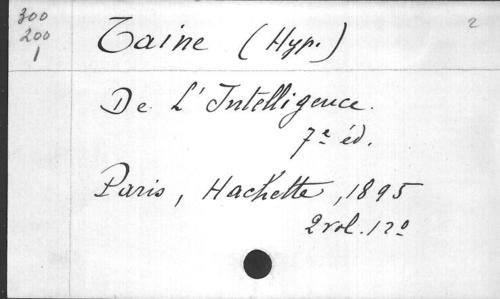 300
200
1
Taine (Hyp.)
2
De L'Intelligence.
7e éd.
Paris, Hachette, 1895
2 vol. 12o